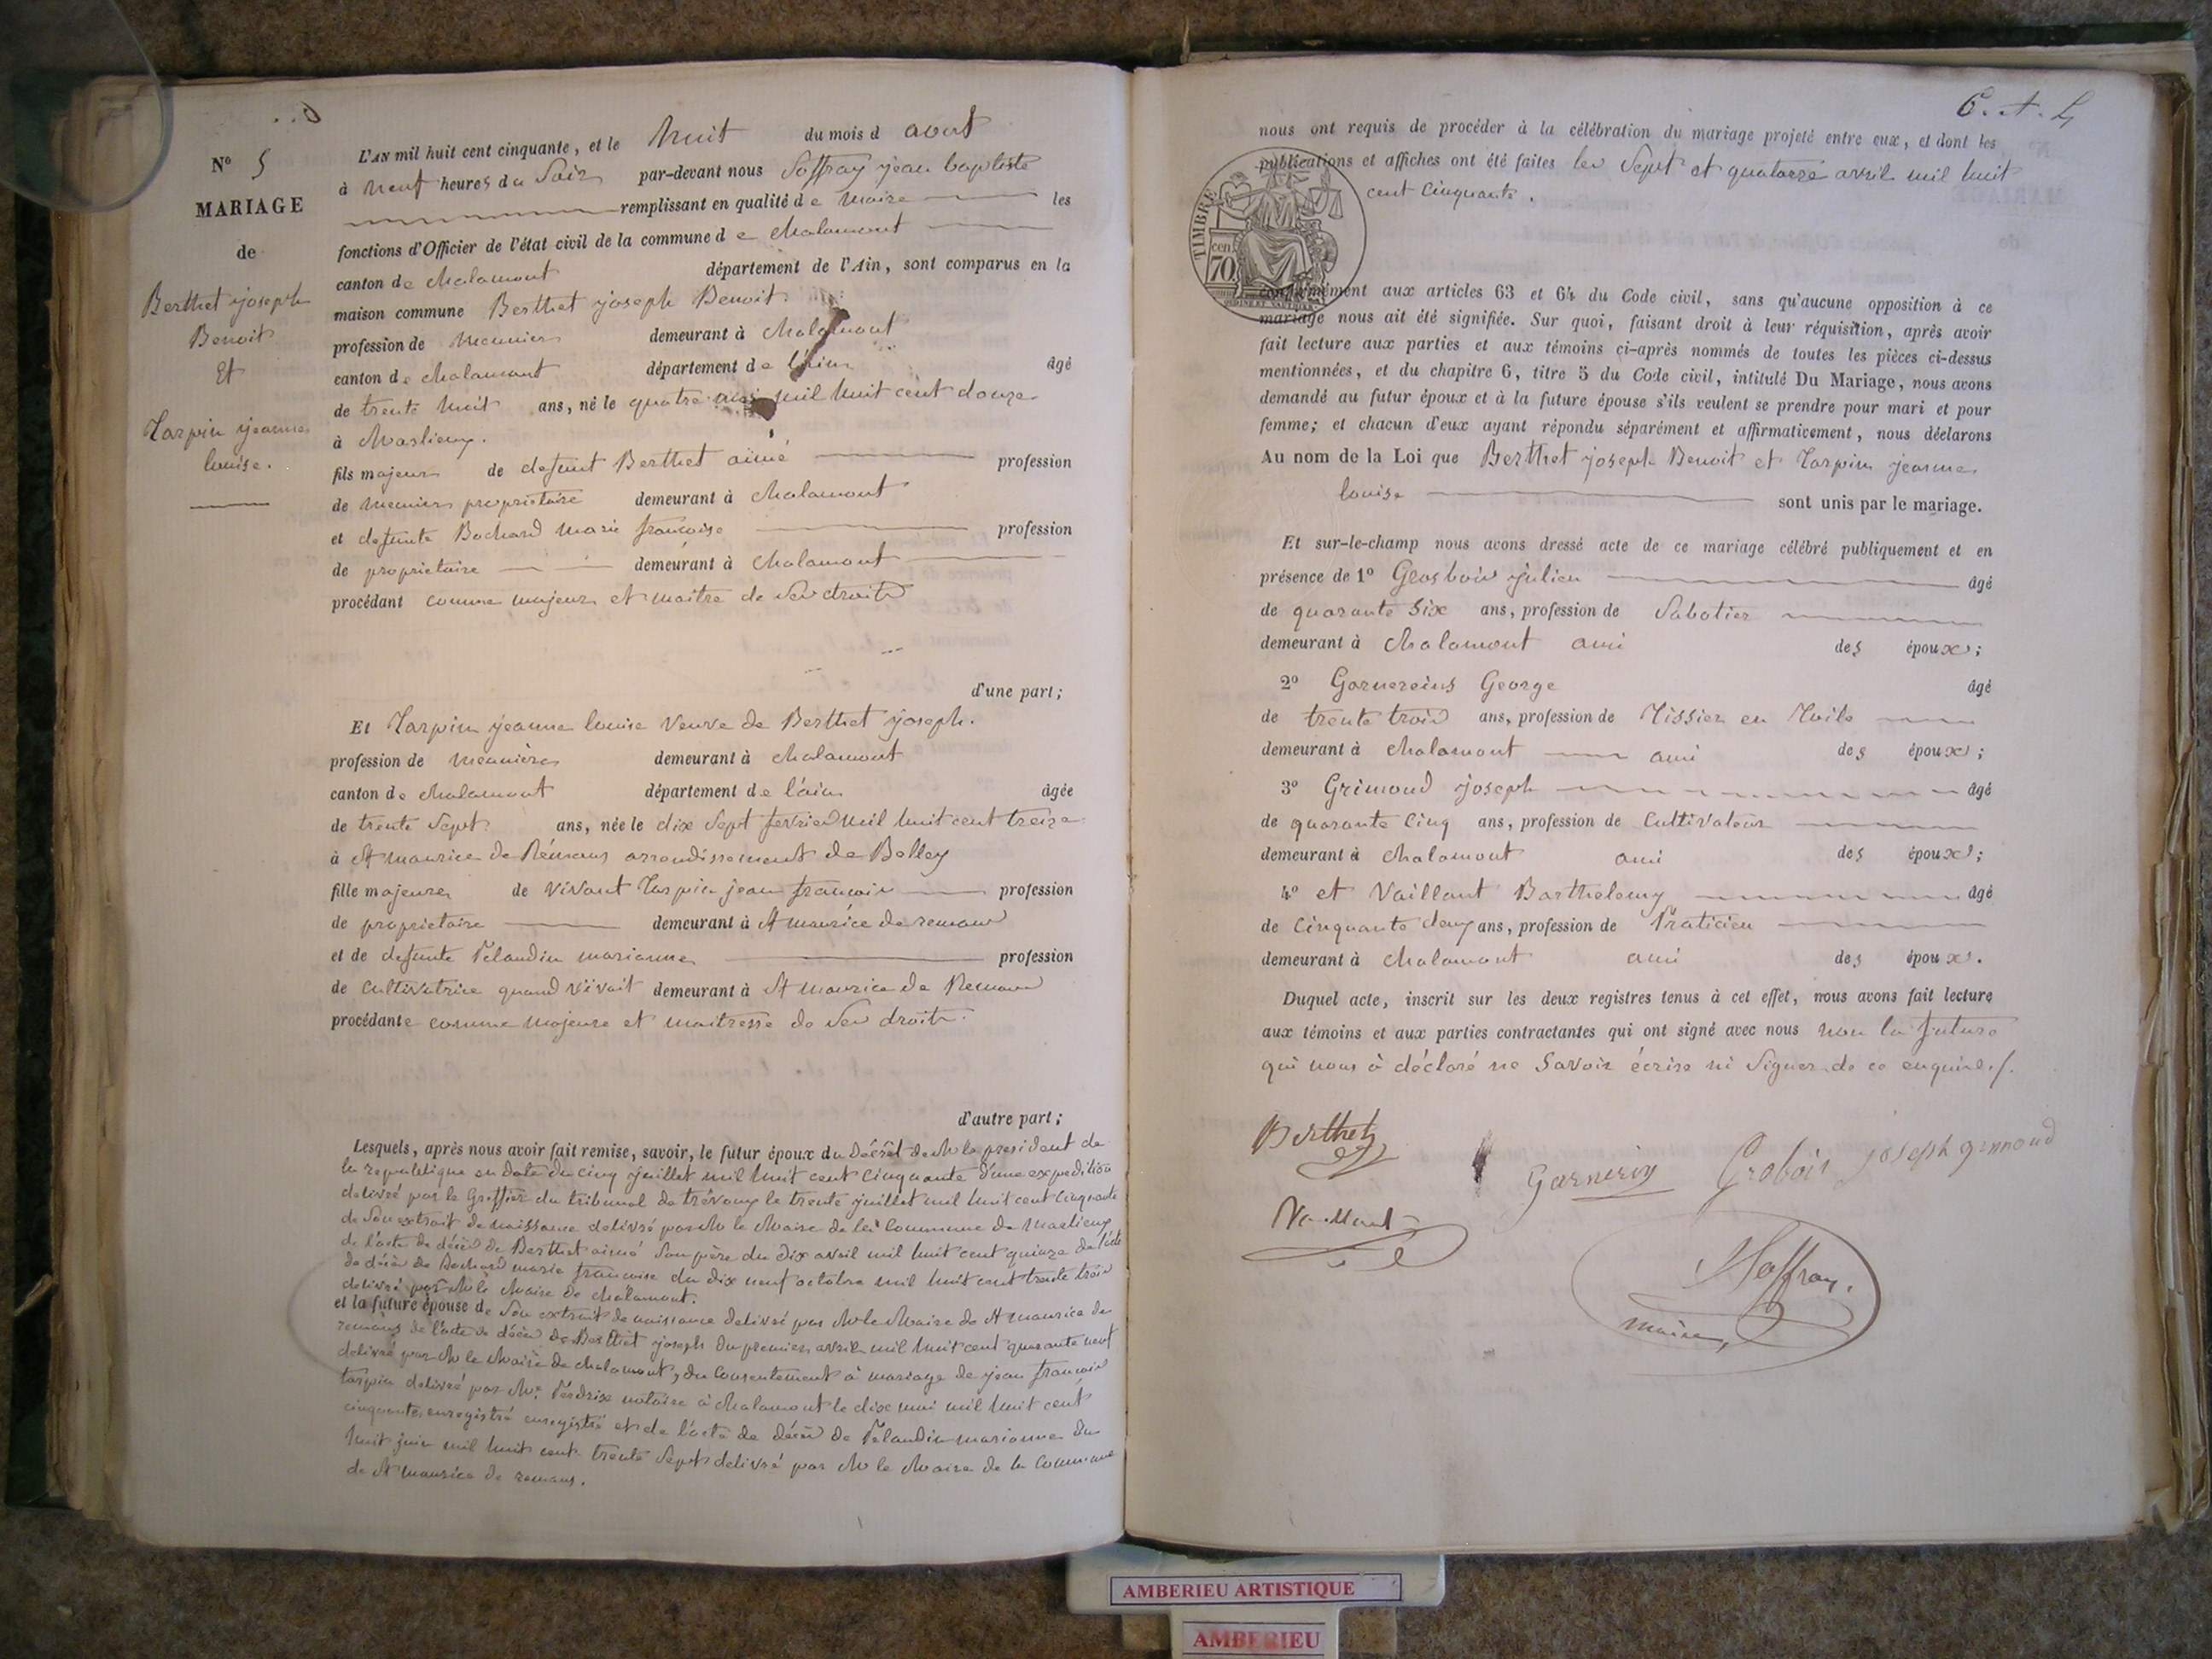 N° 5
MARIAGE
de
Berthet joseph
Benoit
Et
Tarpin jeanne
louise.
L'AN mil huit cent cinquante, et le huit du mois d aout
à neuf heures du Soir par-devant nous Soffray jean baptiste
remplissant en qualité de maire les
fonctions d'Officier de l'état civil de la commune de chalamont
canton de chalamont département de l'Ain, sont comparus en la
maison commune Berthet joseph Benoit
profession de meunier demeurant à chalamont
canton de chalamont département de l'ain âgé
de trente huit ans, né le quatre mai mil huit cent douze
à Marlieux.
fils majeur de defunt Berthet aimé profession
de meunier propriétaire demeurant à chalamont
et defunte Bochard marie francoise profession
de proprietaire demeurant à chalamont
procédant comme majeur et maitre de Ses droits
d'une part;
Et Tarpin jeanne louise veuve de Berthet joseph.
profession de meunière demeurant à chalamont
canton de chalamont département de l'ain âgée
de trente Sept ans, née le dix Sept fevrier mil huit cent treize
à St maurice de Rémens arrondissement de Belley
fille majeure de vivant Tarpin jean francois profession
de proprietaire demeurant à St maurice de remens
et de defunte Pelandin marianne profession
de cultivatrice quand vivait demeurant à St maurice de Remens
procédante comme majeure et maitresse de Ses droits.
d'autre part;
Lesquels, après nous avoir fait remise, savoir, le futur époux du Décret de M le president de
la republique en date du cinq juillet mil huit cent cinquante d'une expedition
delivrée par le Greffier du tribunal de trévoux le trente juillet mil huit cent cinquante
de Son extrait de naissance delivré par M le Maire de la Commune de marlieux
de l'acte de décès de Berthet aimé Son père du dix avril mil huit cent quinze de l'acte
de décès de Bochard marie francoise du dix neuf octobre mil huit cent trente trois
delivré par M le Maire de chalamont.
et la future épouse de Son extrait de naissance delivré par M le Maire de St maurice de
remens de l'acte de décès de Berthet joseph du premier avril mil huit cent quarante neuf
delivré par M le Maire de chalamont, du Consentement à mariage de jean francois
tarpin delivré par Me Perdrix notaire à chalamont le dix mai mil huit cent
cinquante, enregistré enregistré et de l'acte de décès de Pelandin marianne du
huit juin mil huit cent trente Sept delivré par M le Maire de la Commune
de St maurice de remens.
nous ont requis de procéder à la célébration du mariage projeté entre eux, et dont les
publications et affiches ont été faites les Sept et quatorze avril mil huit
cent Cinquante.
TIMBRE
70
conformément aux articles 63 et 64 du Code civil, sans qu'aucune opposition à ce
mariage nous ait été signifiée. Sur quoi, faisant droit à leur réquisition, après avoir
fait lecture aux parties et aux témoins ci-après nommés de toutes les pièces ci-dessus
mentionnées, et du chapitre 6, titre 5 du Code civil, intitulé Du Mariage, nous avons
demandé au futur époux et à la future épouse s'ils veulent se prendre pour mari et pour
femme; et chacun d'eux ayant répondu séparément et affirmativement, nous déclarons
Au nom de la Loi que Berthet joseph Benoit et Tarpin jeanne
louise sont unis par le mariage.
Et sur-le-champ nous avons dressé acte de ce mariage célébré publiquement et en
présence de 1° Grosbois julien âgé
de quarante Six ans, profession de Sabotier
demeurant à chalamont ami des époux;
2° Garnereins George âgé
de trente trois ans, profession de Tissier en Toile
demeurant à chalamont ami des époux;
3° Grimoud joseph âgé
de quarante Cinq ans, profession de Cultivateur
demeurant à chalamont ami des époux;
4° et Vaillant Barthelemy âgé
de Cinquante deux ans, profession de Praticien
demeurant à chalamont ami des époux.
Duquel acte, inscrit sur les deux registres tenus à cet effet, nous avons fait lecture
aux témoins et aux parties contractantes qui ont signé avec nous non la future
qui nous à déclaré ne Savoir écrire ni Signer de ce enquise./.
Berthet
Garnerin Grobois joseph grimoud
Vaillant
Soffray.
maire,
AMBERIEU ARTISTIQUE
AMBERIEU